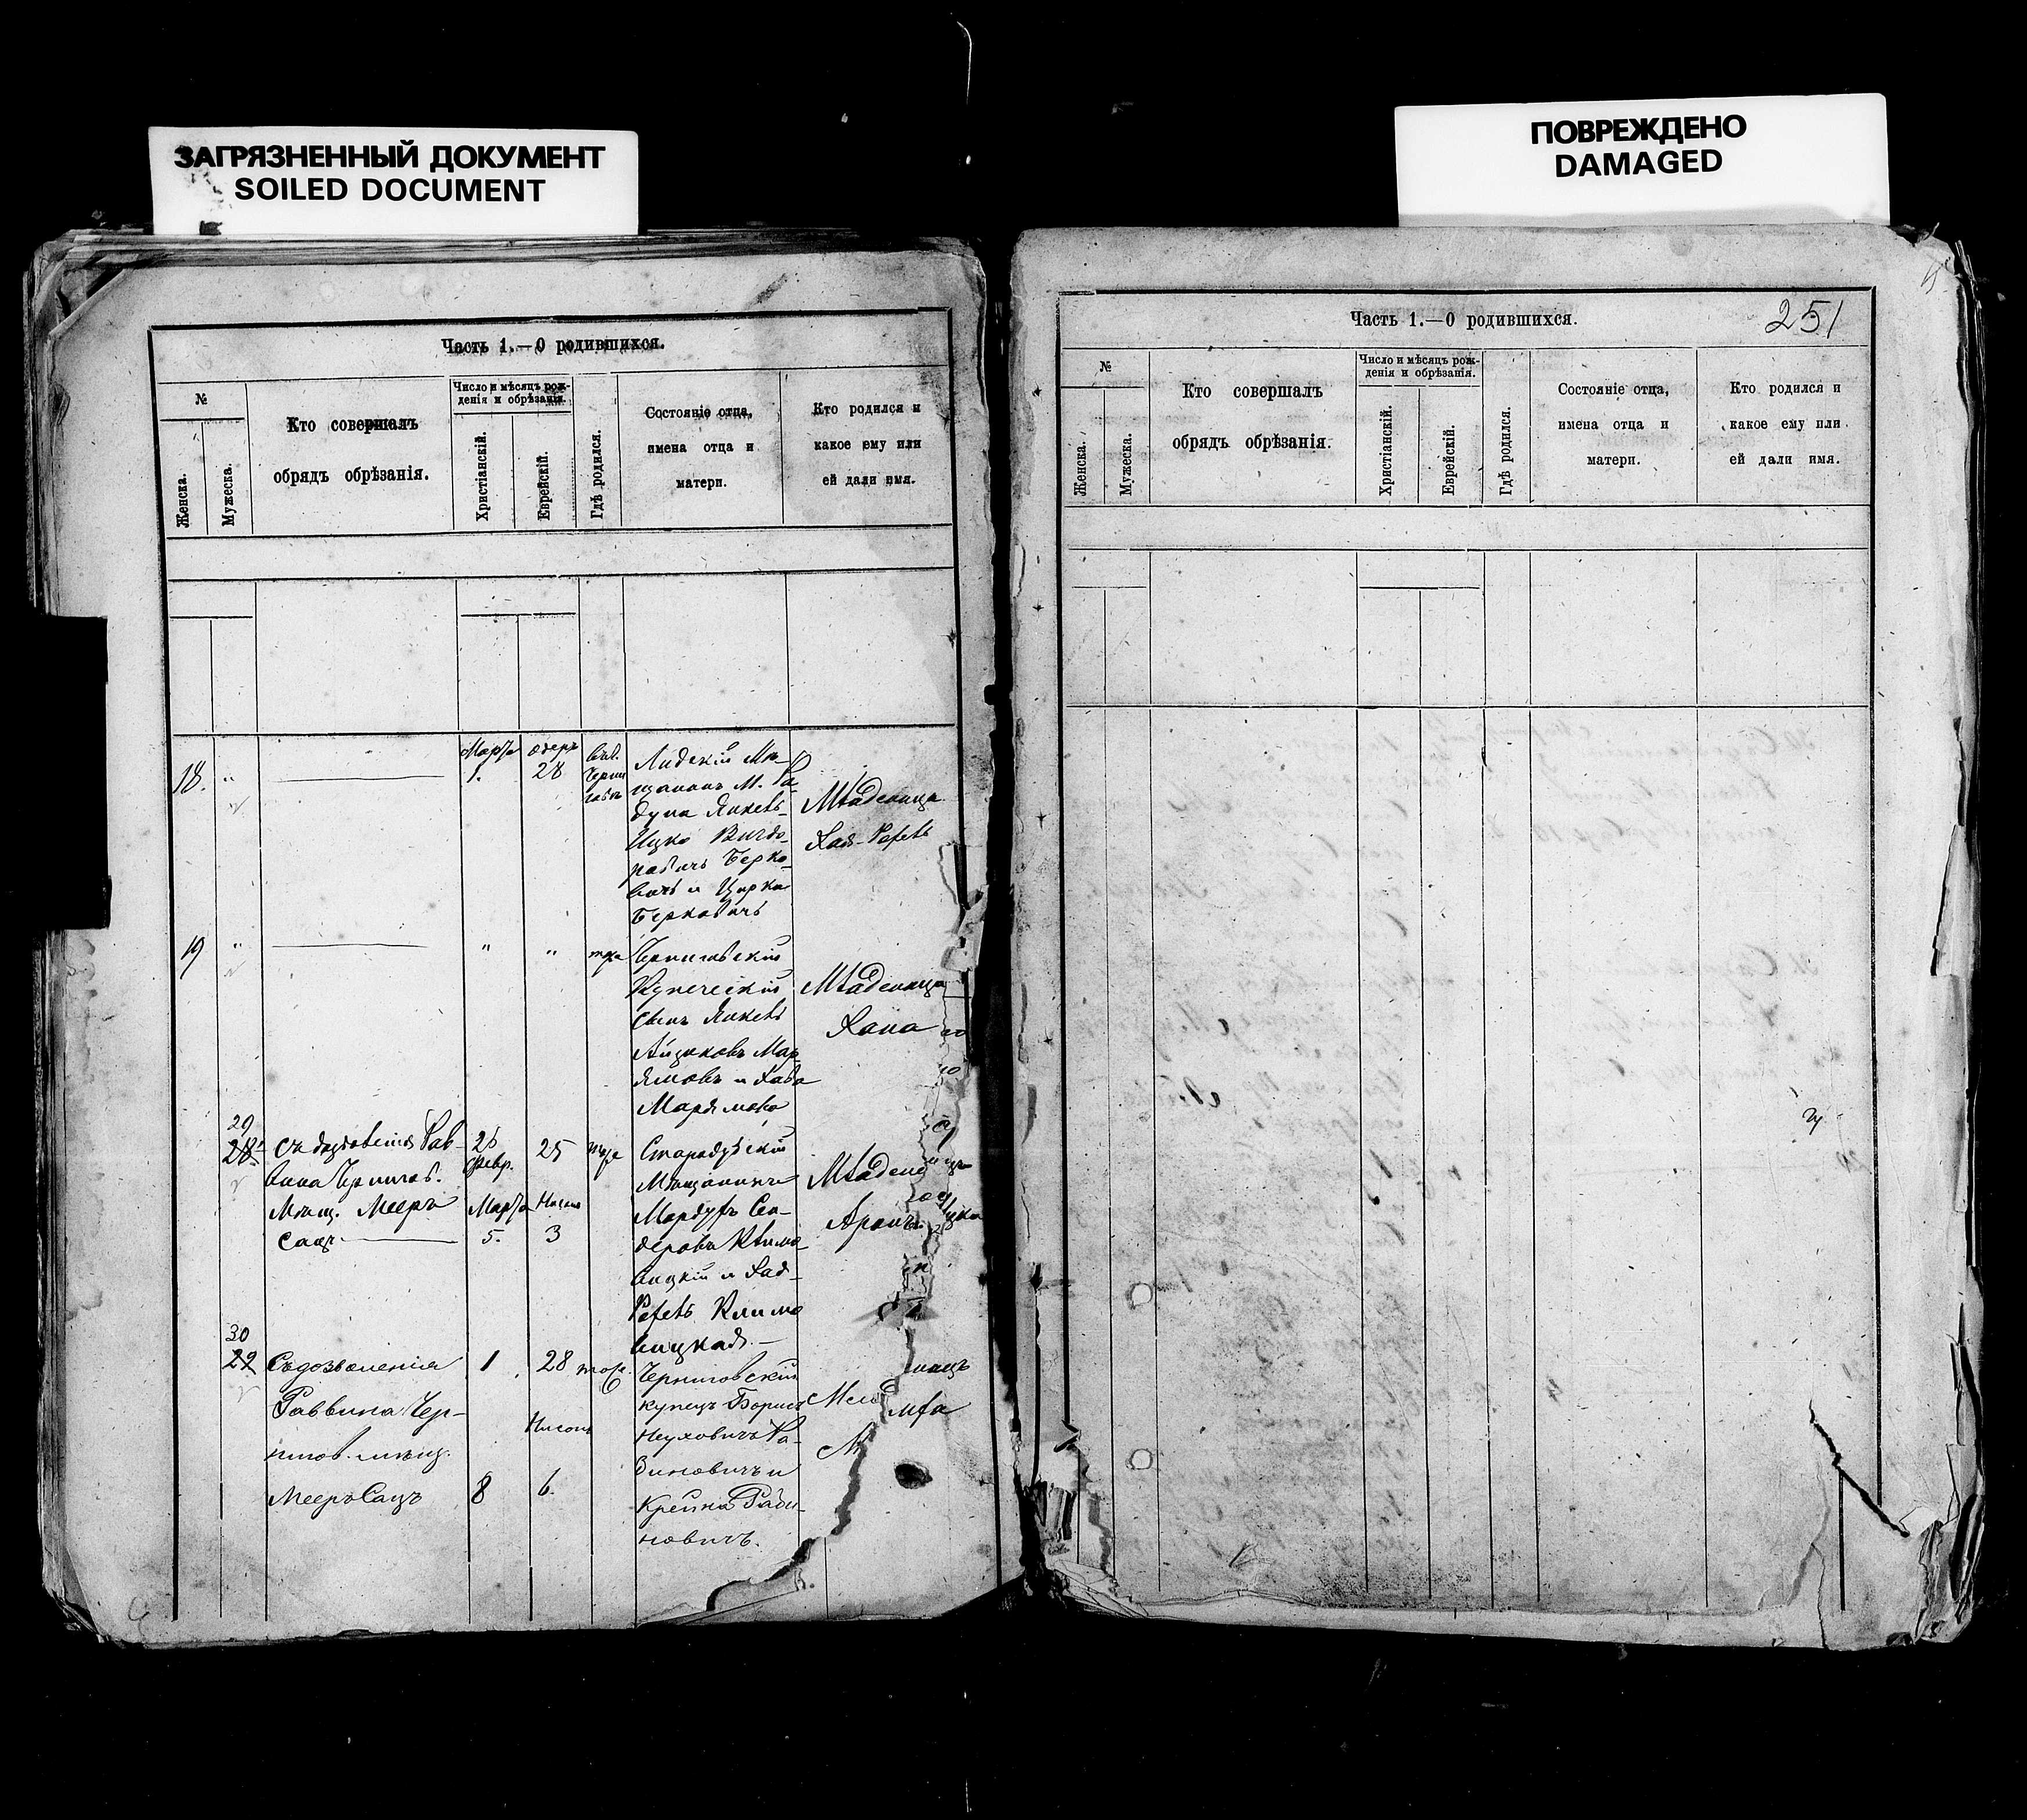 ЗАГРЯЗНЕННЫЙ ДОКУМЕНТ
SOILED DOCUMENT
ПОВРЕЖДЕНО
DAMAGED
Часть 1.—О родившихся.
№
Женска.
Мужеска.
Кто совершалъ
обрядъ обрѣзанія.
Число и мѣсяцъ рож-
денія и обрѣзанія.
Христіанскій.
Еврейскій.
Гдѣ родился.
Состояніе отца,
имена отца и
матери.
Кто родился и
какое ему или
ей дали имя.
18.
Марта
1.
Одеръ
28
Лидскій Мѣ-
щанинъ М. Ра-
дуна Янкель-
Ицко
Берко-
вичъ и Цирка
Берковичъ
Младеница
Хая-Рефель
19
тоже
Черниговскій
Купеческій
сынъ Янкель
Айзиковъ Мар-
ямовъ и Хава
Марямова
Младеница
Хана
29
28
Съ дозволенія Рав-
вина Чернигов.
Мѣщ. Мееръ
Сацъ
26
Февр.
Марта
5.
25
Нисанъ
3
тоже
Стародубскій
Мѣщанинъ
Клима-
вицкій и Хая-
Рефель Климо
вицкая.—
Младене
Аронъ
30
22
Съ дозволенія
Раввина Чер-
нигов. мѣщ.
Мееръ Сацъ
1
8
28
Нисонъ
6.
тоже.
Черниговскій
купецъ Борисъ
Неуховичъ Ра-
биновичъ и
Крейна Раби-
новичъ.
Часть 1.—О родившихся.
251
№
Женска.
Мужеска.
Кто совершалъ
обрядъ обрѣзанія.
Число и мѣсяцъ рож-
денія и обрѣзанія.
Христіанскій.
Еврейскій.
Гдѣ родился.
Состояніе отца,
имена отца и
матери.
Кто родился и
какое ему или
ей дали имя.